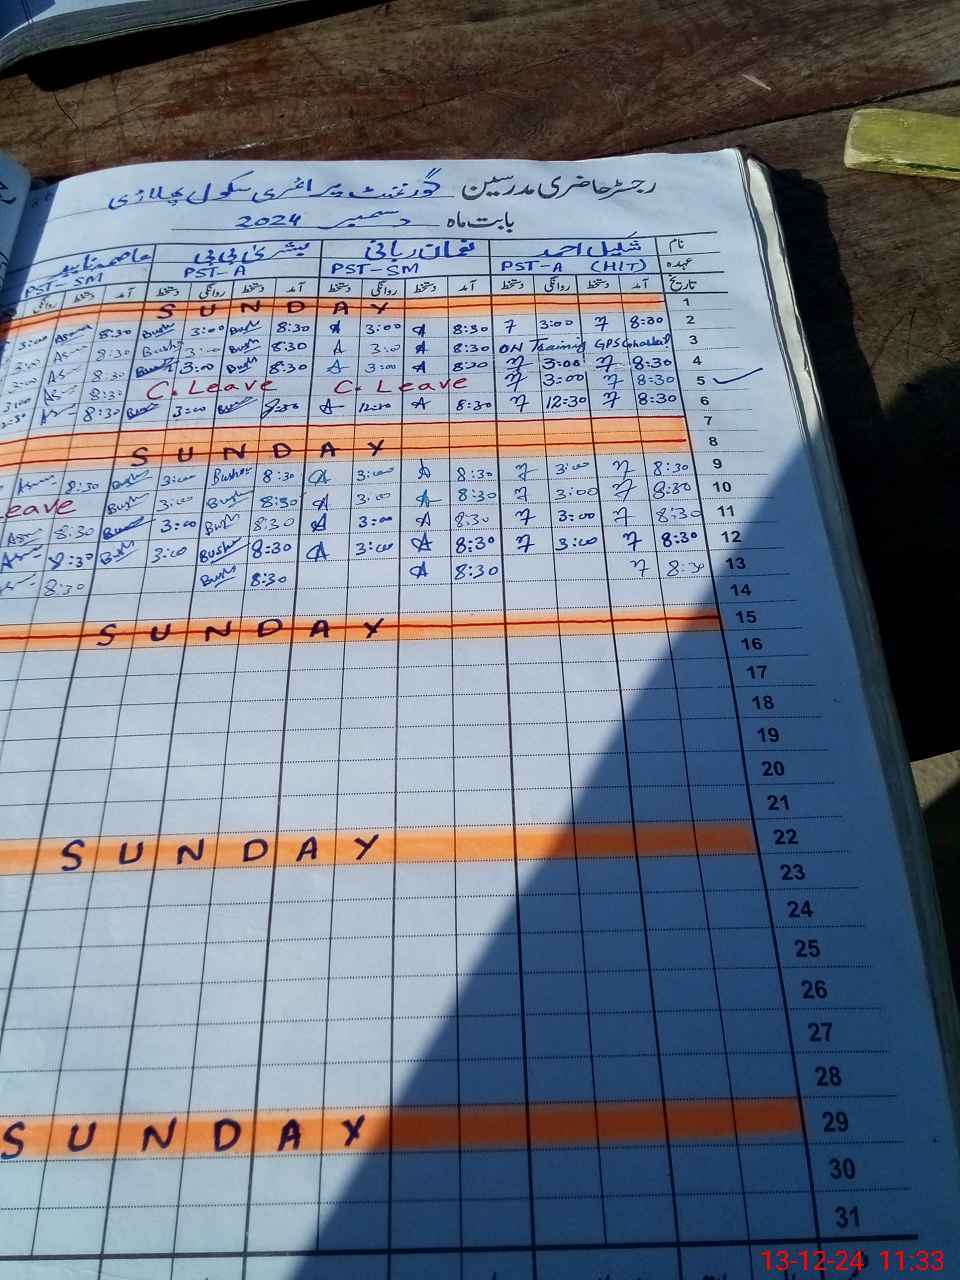 رجسٹر حاضری مدرسین گورنمنٹ پرائمری سکول
بابت ماہ دسمبر 2024
نام شکیل احمد نعمان ربانی بشریٰ بی بی
عہدہ PST-A (HIT) PST-SM PST-A PST-SM
تاریخ آمد دستخط روانگی دستخط آمد دستخط روانگی دستخط آمد دستخط روانگی دستخط آمد دستخط روانگی
S U N D A Y 1
3:00 8:30 Bush 3:00 Bush 8:30 3:00 8:30 7 3:00 7 8:30 2
3:00 8:30 Bush 3:00 Bush 8:30 A 3:00 A 8:30 ON Training GPS 3
3:00 8:30 3:00 Bush 8:30 A 3:00 A 8:30 7 3:00 7 8:30 4
3:00 8:30 C. Leave C. Leave 7 3:00 7 8:30 5
8:30 3:00 8:30 A 12:30 A 8:30 7 12:30 7 8:30 6
7
S U N D A Y 8
8:30 3:00 Bush 8:30 A 3:00 A 8:30 7 3:00 7 8:30 9
eave Bush 3:00 Bush 8:30 A 3:00 A 8:30 7 3:00 7 8:30 10
8:30 3:00 Bush 8:30 A 3:00 A 8:30 7 3:00 7 8:30 11
8:30 Bush 3:00 Bush 8:30 A 3:00 A 8:30 7 3:00 7 8:30 12
8:30 Bush 8:30 A 8:30 7 8:30 13
14
S U N D A Y 15
16
17
18
19
20
21
S U N D A Y 22
23
24
25
26
27
28
S U N D A Y 29
30
31
13-12-24 11:33